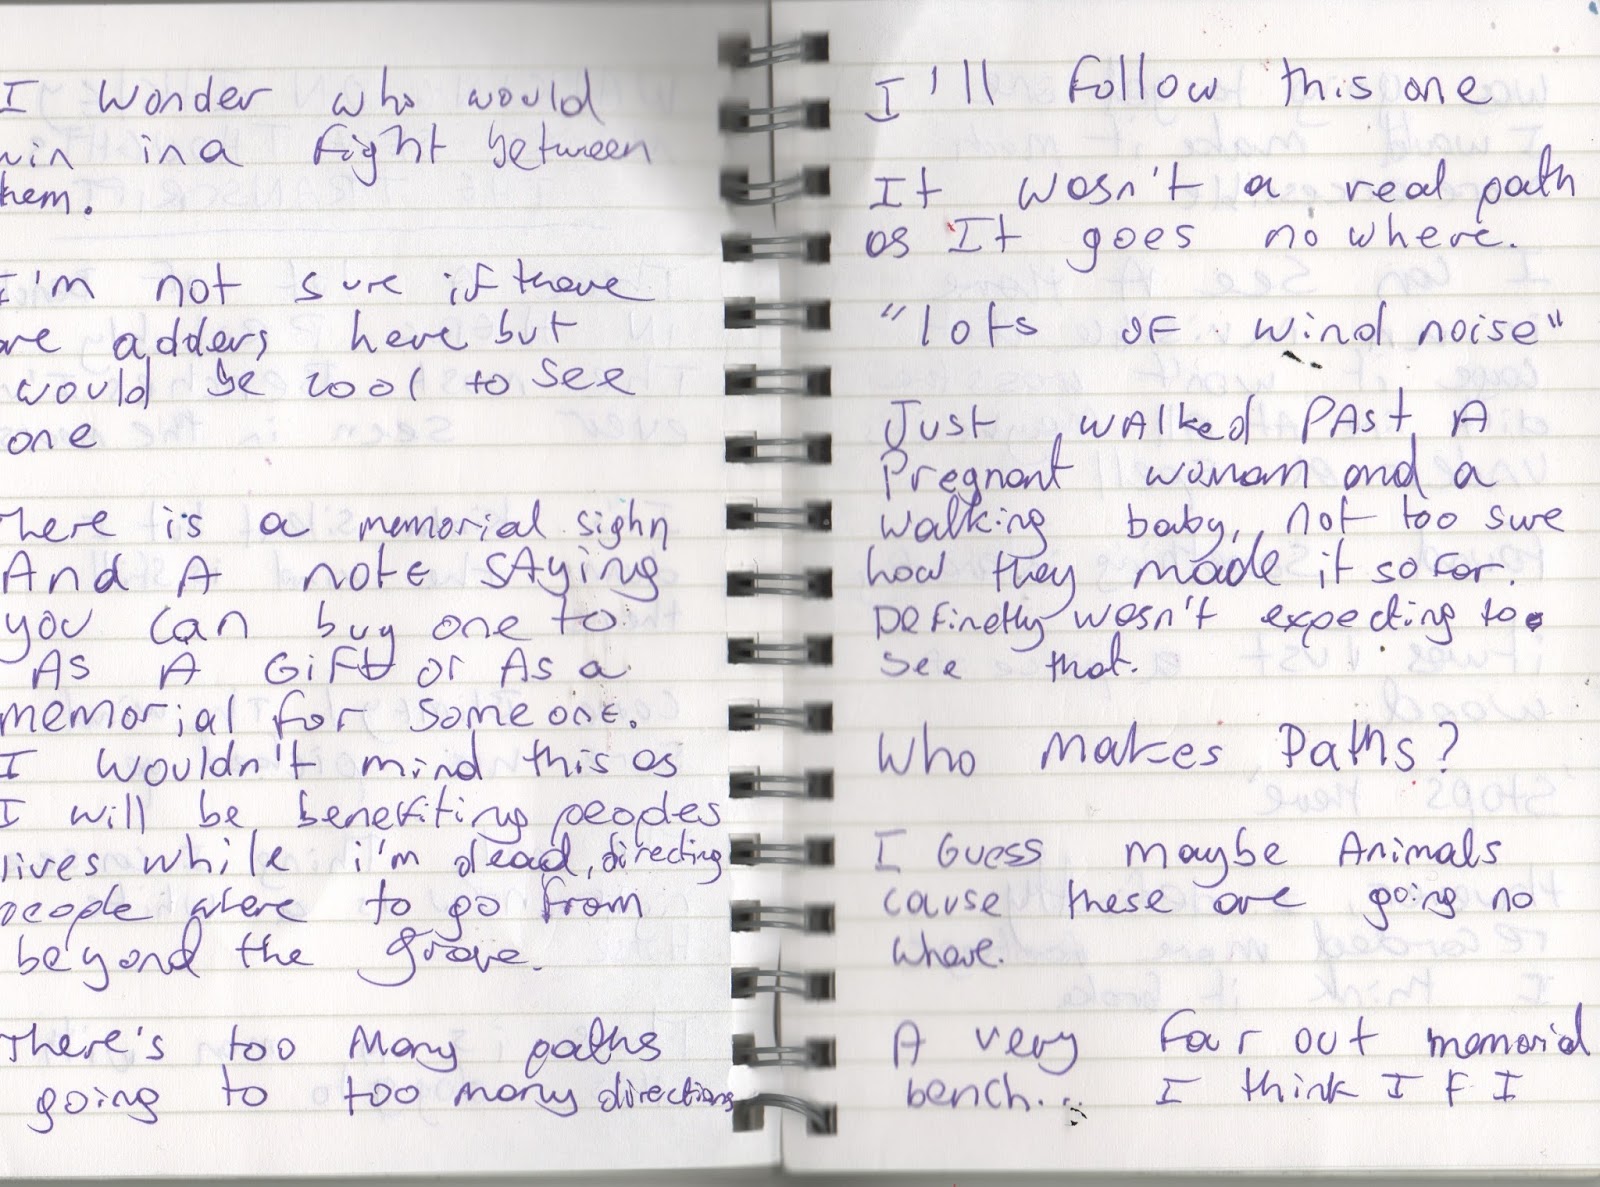 I Wonder who would
win in a fight between
them.
I'm not sure if there
are adders here but
would be cool to see
one
There is a memorial sighn
And A note SAying
you can buy one to
AS A GiFt or As a
memorial for someone.
I wouldn't mind this as
I will be benefiting peoples
lives while i'm dead, directing
people where to go from
beyond the grave.
There's too many paths
going to too many directions
I'll follow this one
It wasn't a real path
as It goes no where.
"lots OF wind noise"
Just wAlked PAst A
Pregnant woman and a
walking baby, not too sure
how they made it so far.
DeFinetly wasn't expecting to
see that.
Who makes Paths?
I Guess maybe Animals
cause these are going no
where.
A very far out memorial
bench... I think IF I